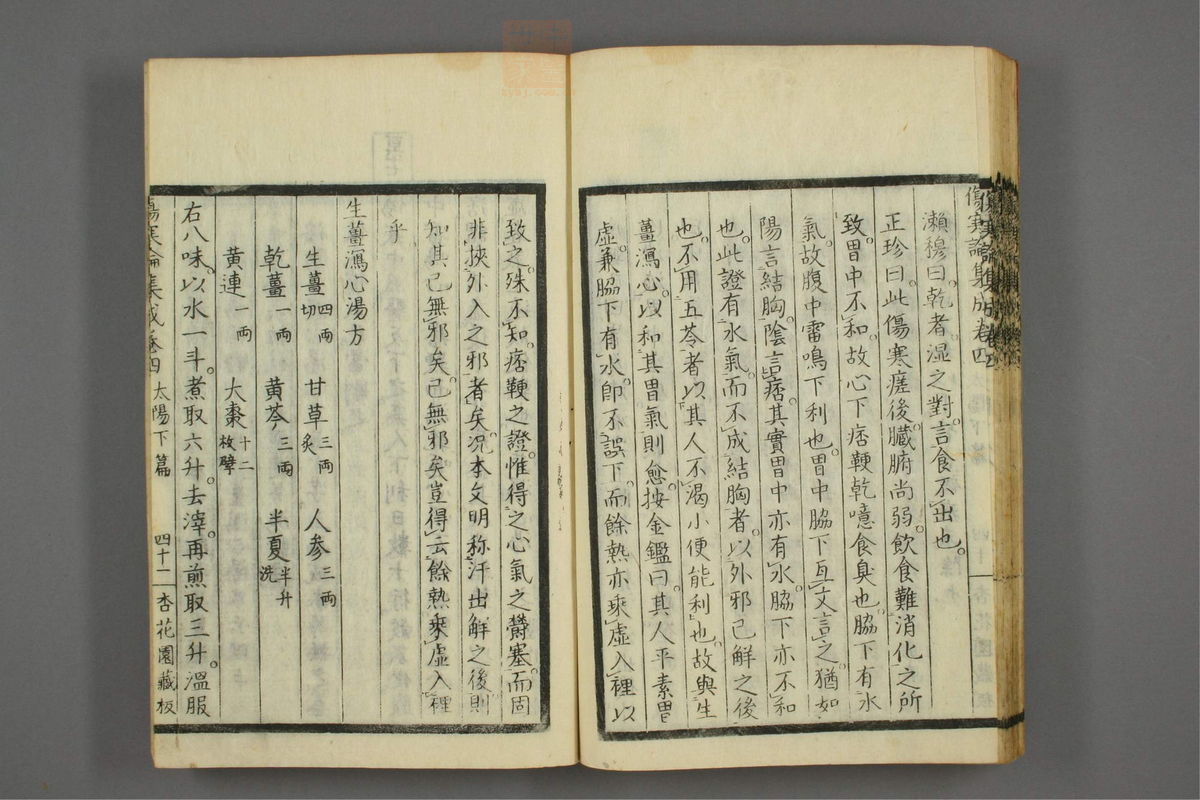 傷寒論集成卷四
瀨穆曰。乾者湿之對。言食不出也。
正珍曰。此傷寒瘥後。臟腑尚弱。飲食難消化之所
致。胃中不和。故心下痞鞕乾噫食臭也。脇下有水
氣。故腹中雷鳴下利也。胃中脇下互文言之。猶如
陽言結胸。陰言痞。其實胃中亦有水。脇下亦不和
也。此證有水氣。而不成結胸者。以外邪已解之後
也。不用五苓者。以其人不渴小便能利也。故與生
薑瀉心。以和其胃氣則愈。按金鑑曰。其人平素胃
虛。兼脇下有水。卽不誤下。而餘熱亦乘虛入裡。以
致之。殊不知。痞鞕之證。惟得之心氣之欝塞。而固
非挾外入之邪者矣。况本文明称汗出解之後。則
知其已無邪矣。已無邪矣。豈得云餘熱乘虛入裡
乎
生薑瀉心湯方
生薑四両切 甘草三両炙 人参三両
乾薑一両 黄芩三両 半夏半升洗
黄連一両 大棗十二枚擘
右八味。以水一斗。煮取六升。去滓。再煎取三升。溫服
傷寒論集成卷四 太陽下篇 四十一 杏花園藏板